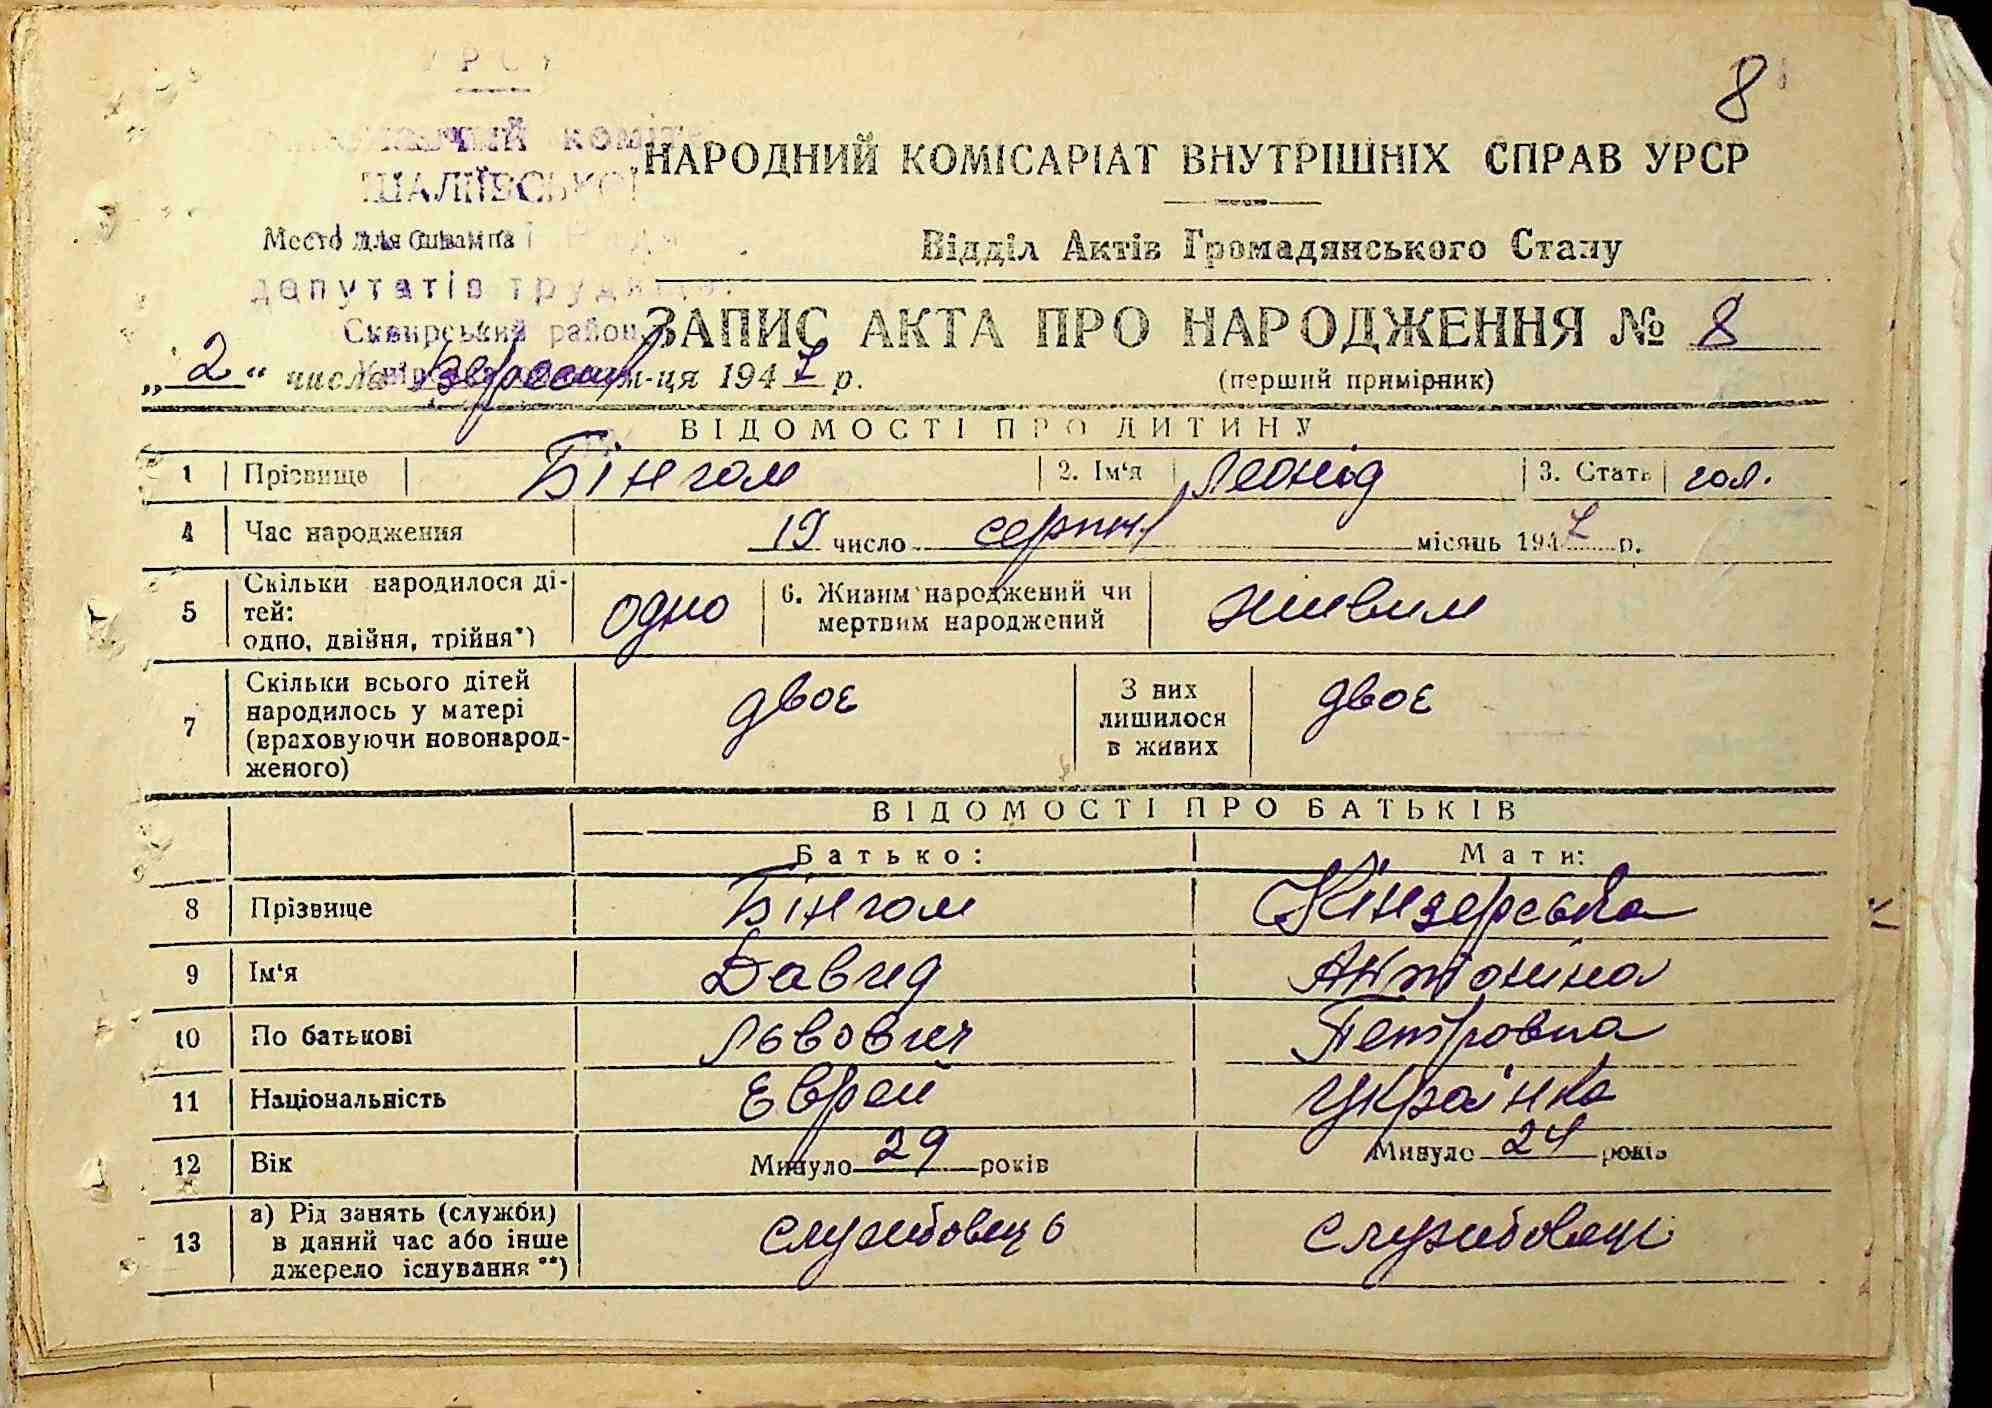 8
УРСР
комітет
ШАЛІЇВСЬКОЇ
НАРОДНИЙ КОМІСАРІАТ ВНУТРІШНІХ СПРАВ УРСР
Место для штампа
Відділ Актів Громадянського Стану
депутатів трудящих
Сквирський район
ЗАПИС АКТА ПРО НАРОДЖЕННЯ № 8
„2“ числа Вересня м-ця 1947 р.
(перший примірник)
ВІДОМОСТІ ПРО ДИТИНУ
1 Прізвище Бінгом 2. Ім'я Леонід 3. Стать чол.
4 Час народження 19 число серпня місяць 1947 р.
5 Скільки народилося ді-
тей:
одно, двійня, трійня*) одно 6. Живим народжений чи
мертвим народжений живим
7 Скільки всього дітей
народилось у матері
(враховуючи новонарод-
женого) двоє З них
лишилося
в живих двоє
ВІДОМОСТІ ПРО БАТЬКІВ
Батько: Мати:
8 Прізвище Бінгом Кінзерська
9 Ім'я Давид Антоніна
10 По батькові Львович Петровна
11 Національність Еврей Українка
12 Вік Минуло 29 років Минуло 24 років
13 а) Рід занять (служби)
в даний час або інше
джерело існування**) службовець службовець